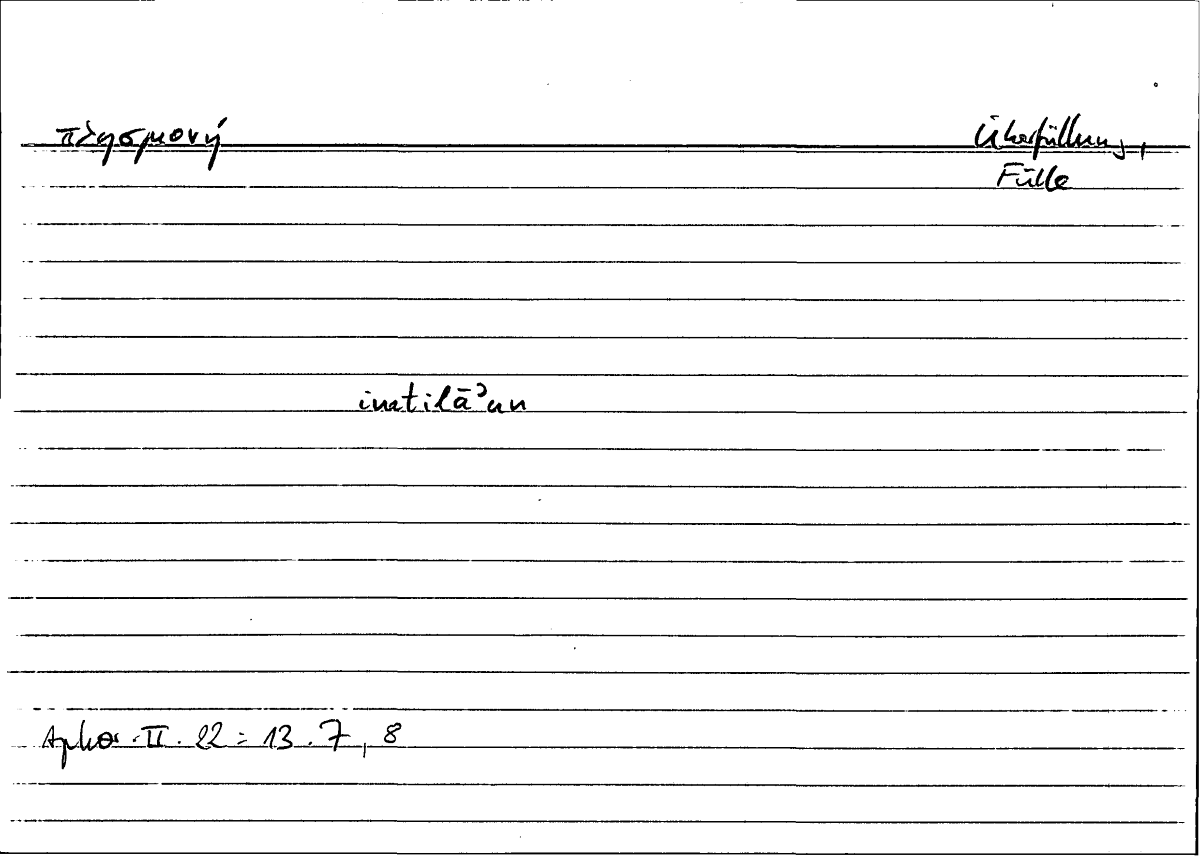 πλησμονή Überfüllung,
Fülle
imtilāʾun
Aphor. II. 22 = 13. 7, 8